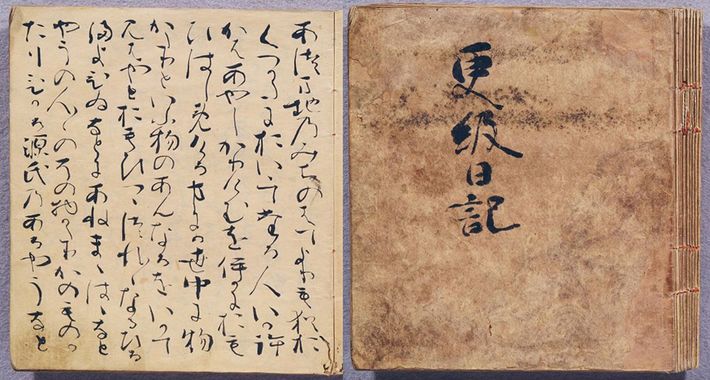 更級日記
あつま地のみちのはてよりも猶お
くつかたにおいいてたる人いか許
かはあやしかりけむをいかにおも
ひはしめける事にか世中に物
かたりといふ物のあんなるをいかて
見はやとおもひつゝつれ〳〵なるひる
まよひゐなとにあねまゝはゝなと
やうの人〻のその物かたりかのものか
たりひかる源氏のあるやうなと